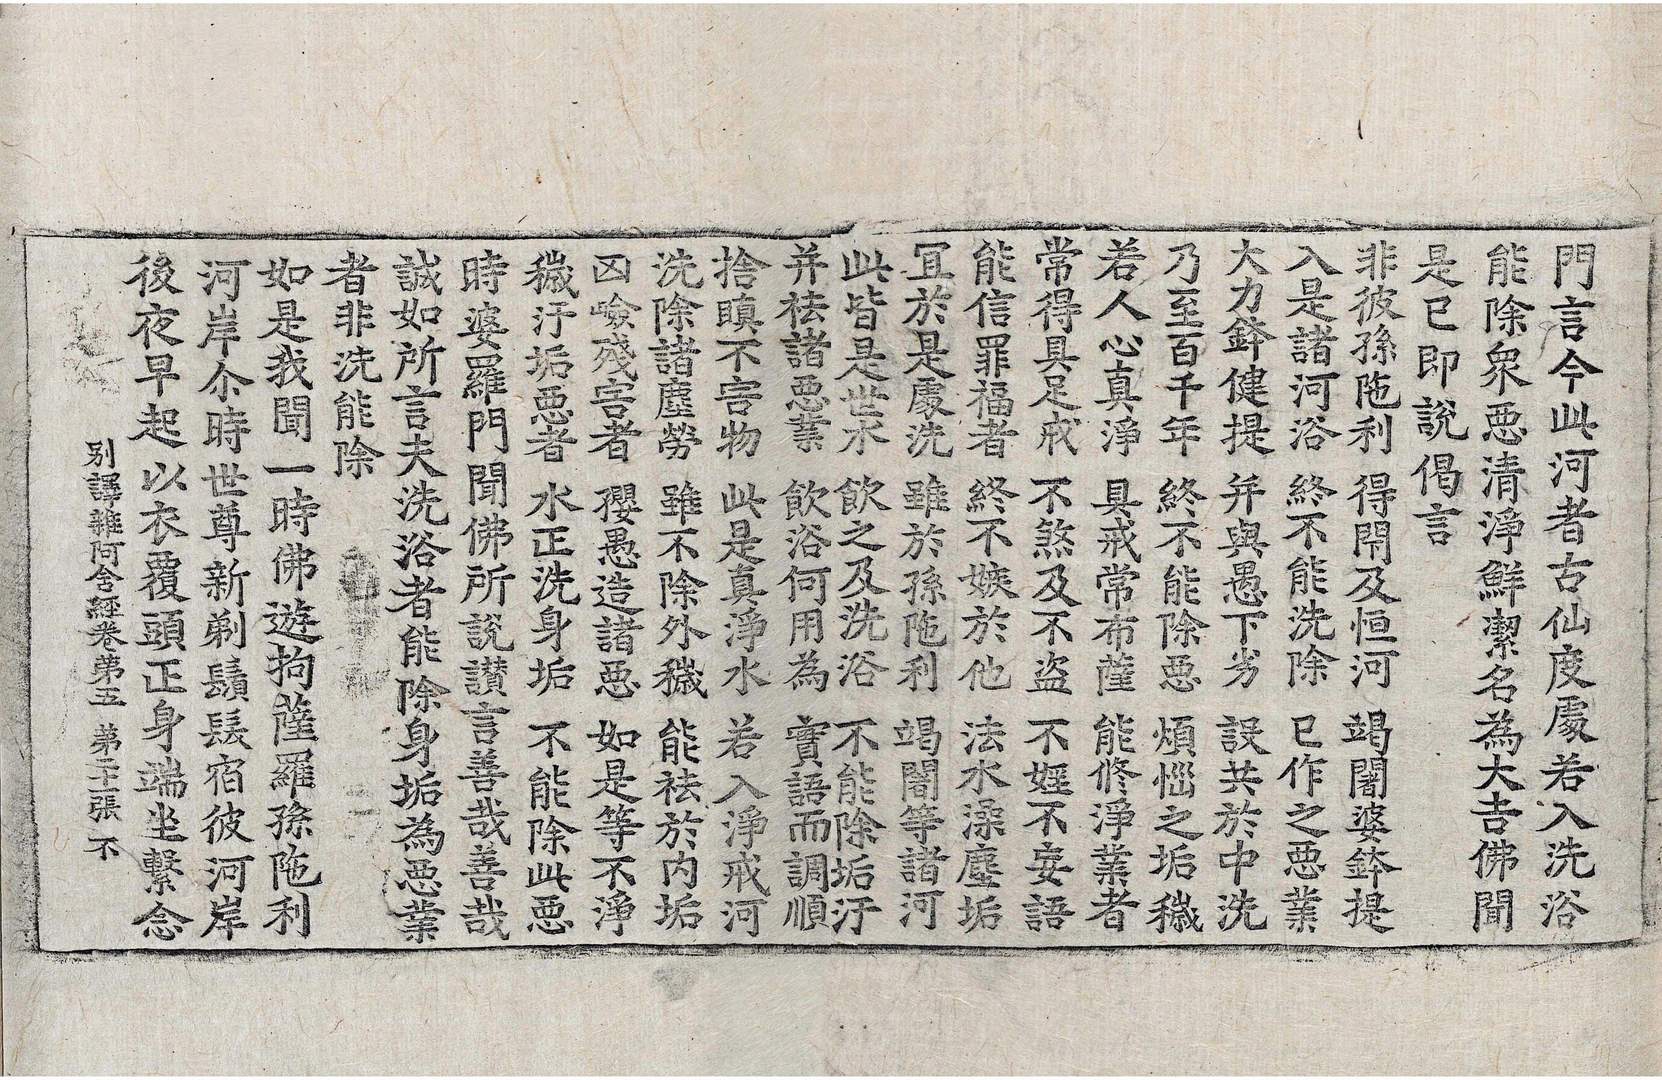 門言今此河者古仙度處若入洗浴
能除衆惡清淨鮮潔名為大吉佛聞
是已即說偈言
非彼孫陁利 得閇及恒河 竭闍婆鉢提
入是諸河浴 終不能洗除 已作之惡業
大力鉾健提 并與愚下劣 設共於中洗
乃至百千年 終不能除惡 煩惱之垢穢
若人心真淨 具戒常布薩 能修淨業者
常得具足戒 不煞及不盜 不婬不妄語
能信罪福者 終不嫉於他 法水澡塵垢
冝於是處洗 雖於孫陁利 竭闍等諸河
此皆是世水 飲之及洗浴 不能除垢汙
并祛諸惡業 飲浴何用為 實語而調順
捨瞋不害物 此是真淨水 若入淨戒河
洗除諸塵勞 雖不除外穢 能祛於内垢
凶嶮殘害者 㹊愚造諸惡 如是等不淨
穢汙垢惡者 水正洗身垢 不能除此惡
時婆羅門聞佛所說讃言善哉善哉
誠如所言夫洗浴者能除身垢為惡業
者非洗能除
如是我聞一時佛遊拘薩羅孫陁利
河岸尒時世尊新剃鬚髮宿彼河岸
後夜早起以衣覆頭正身端坐繫念
別譯雜阿舍經卷第五 第二十二張 不